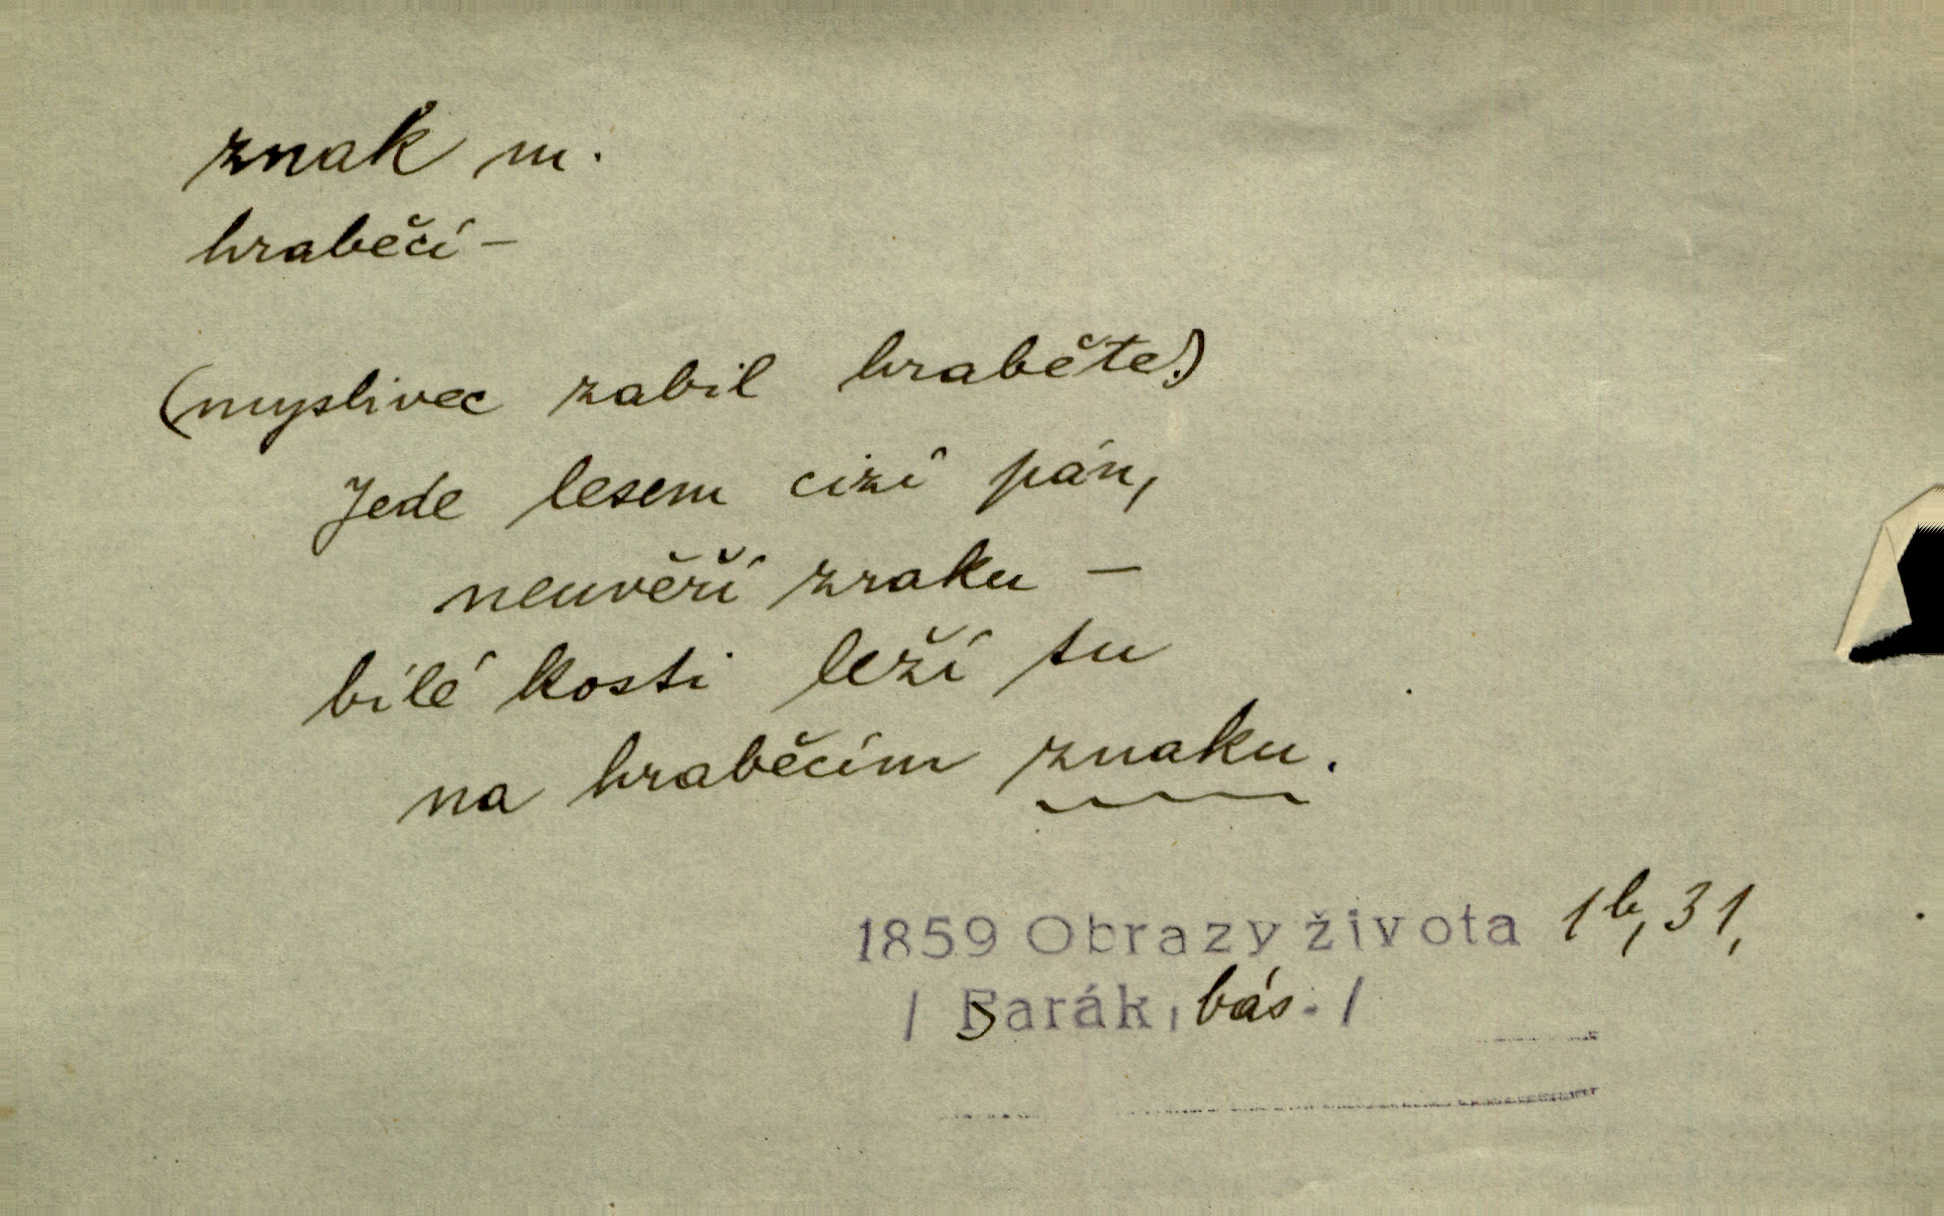 znak m.
hraběčí –
(myslivec zabil hraběte.)
Jede lesem cizí pán,
neuvěří zraku –
bílé kosti leží tu
na hraběcím znaku.
1859 Obrazy života 1b, 31,
/ Barák, bás. /